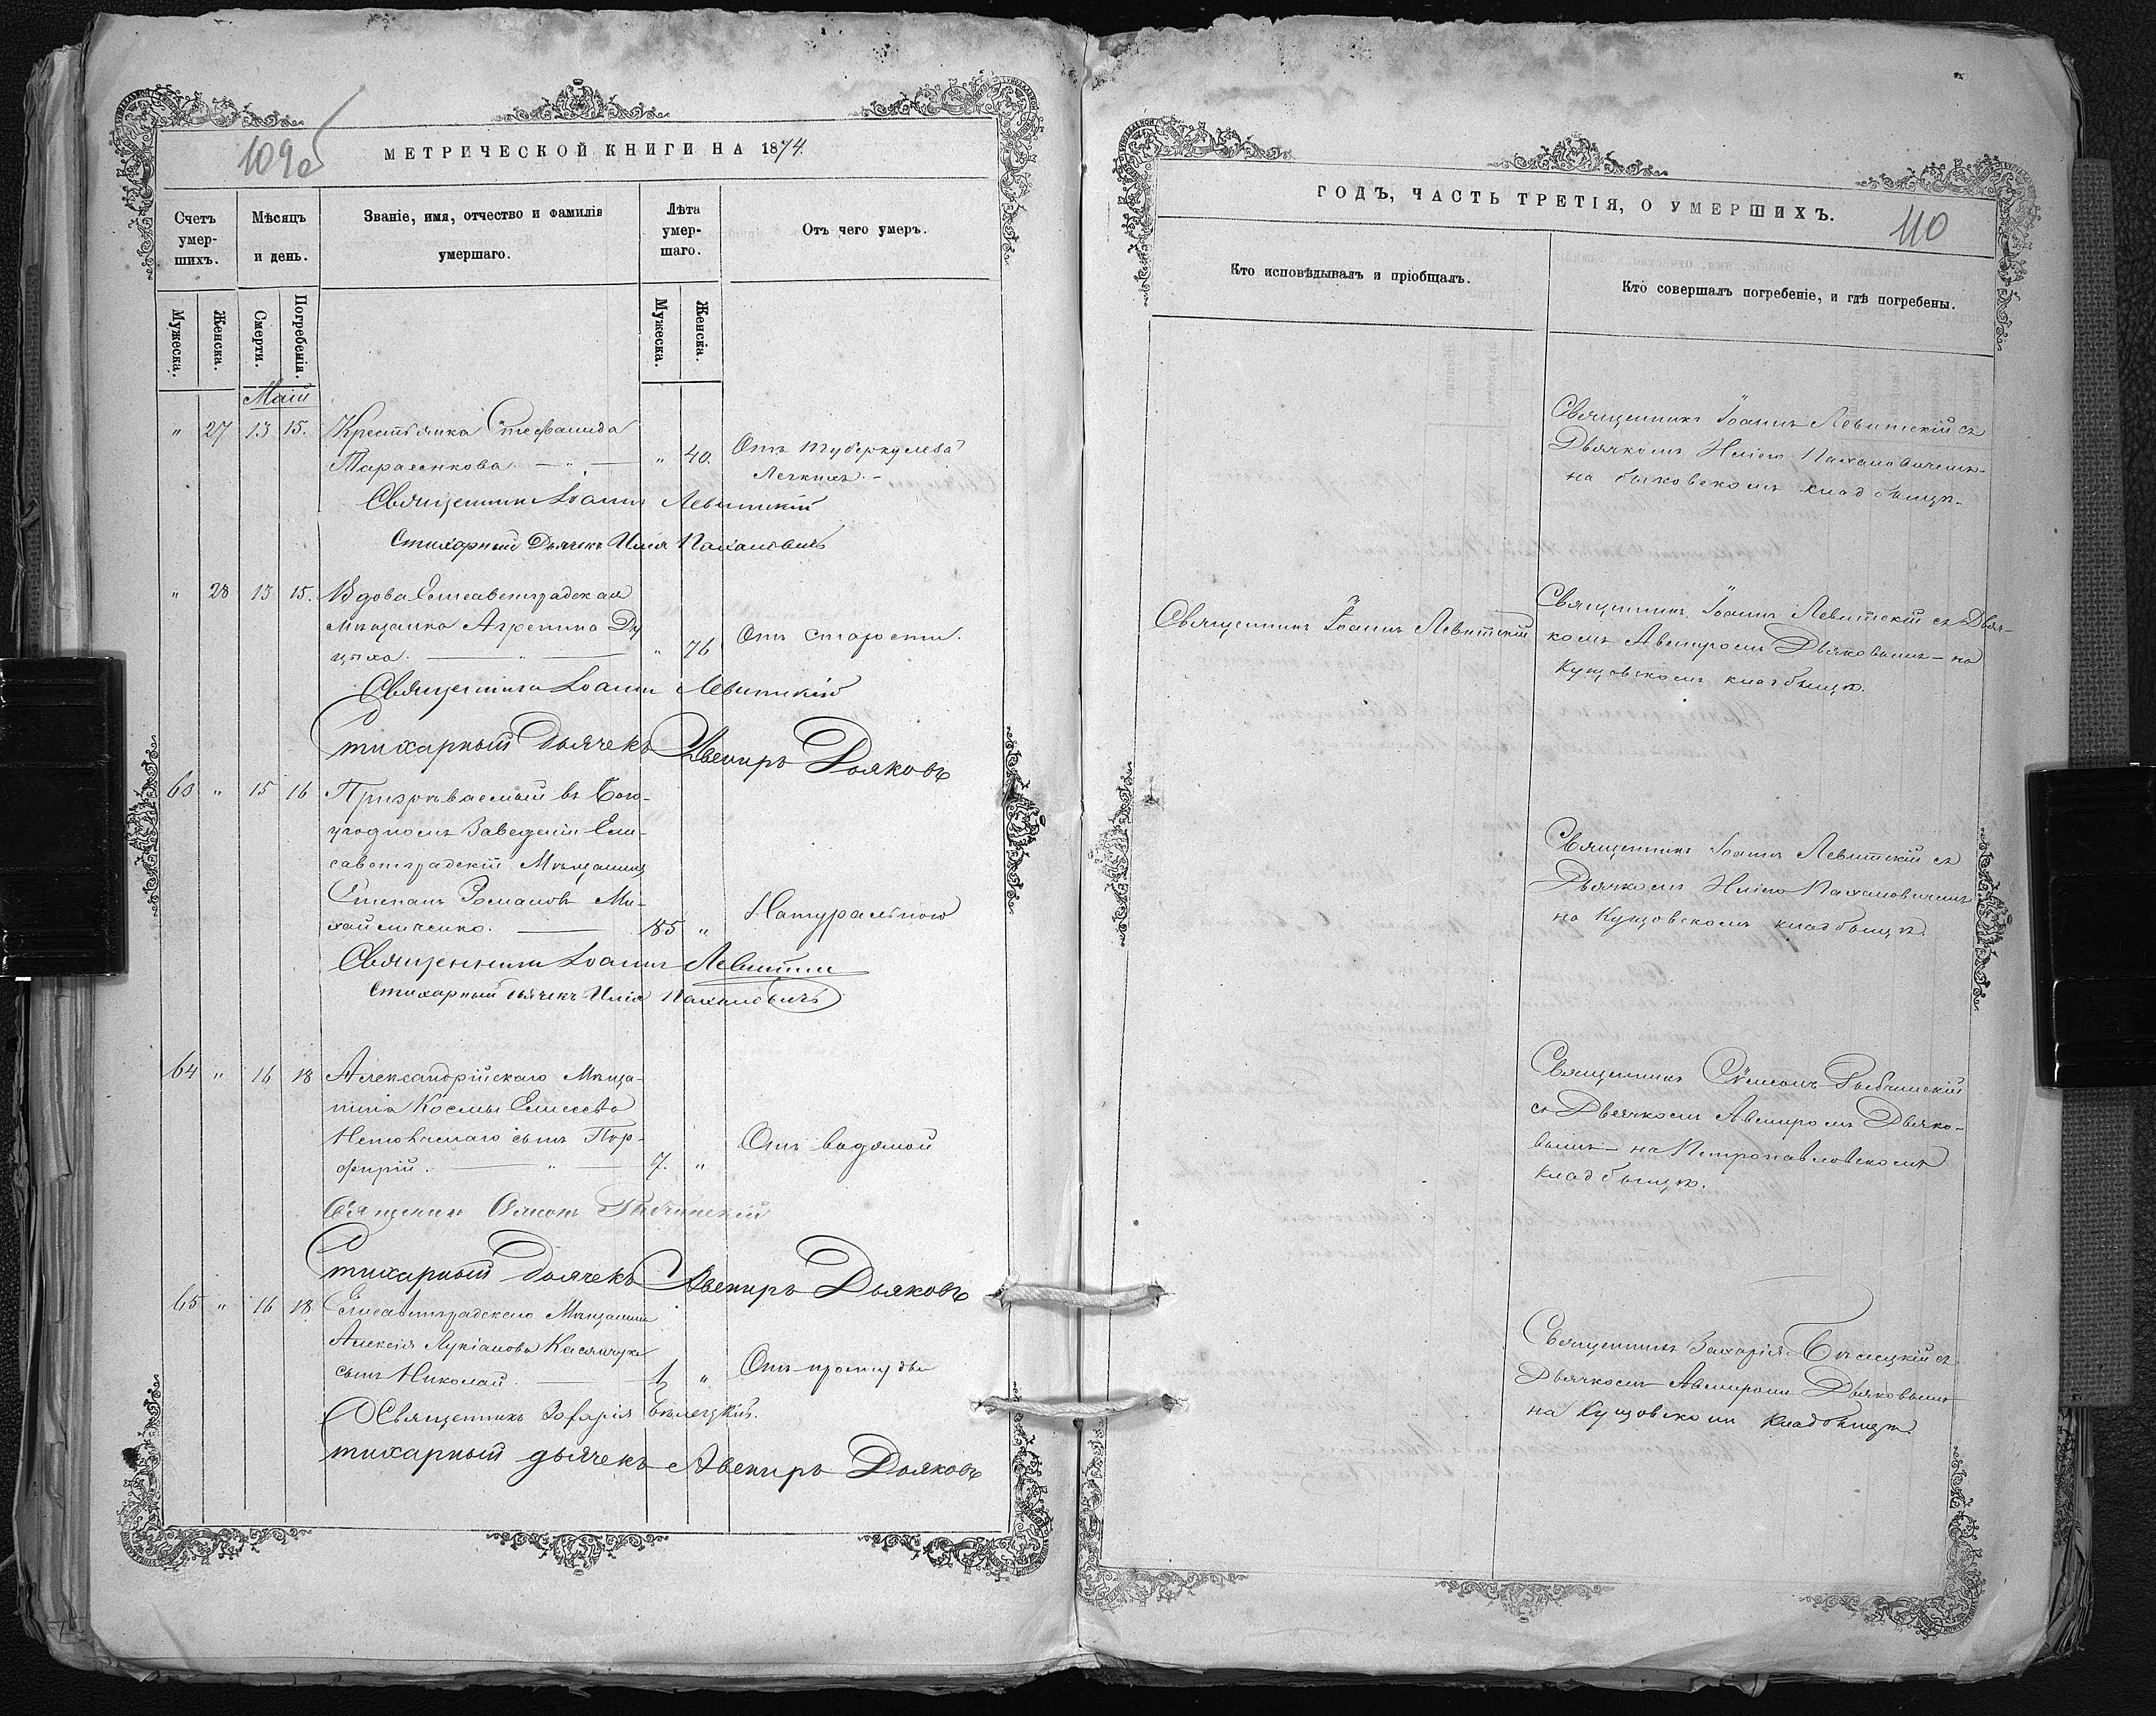 109об
МЕТРИЧЕСКОЙ КНИГИ НА 1874.
Счетъ умер-шихъ.
Мѣсяцъ и день.
Званіе, имя, отчество и фамилія умершаго.
Лѣта умер-шаго.
Отъ чего умеръ.
Мужеска.
Женска.
Смерти.
Погребенія.
Мужеска.
Женскія.
Маій
" 27 13 15. Крестьянка Стефанида
Тараненкова. — " — " 40. Отъ туберкулеза
Легкихъ. -
Священникъ Іоаннъ Левитскій
Стихарный Дьячекъ Илія Пахаловичъ
" 28 13 15. Вдова Елисаветградская
Мѣщанка Агрепина Ду
цыха. — " — " 76 Отъ старости.
Священникъ Іоаннъ Левитскій
Стихарный дьячекъ Авениръ Дьяковъ
63 " 15 16 Призрѣваемый въ Бого-
угодномъ Заведеніи Ели-
саветградскій Мѣщанинъ
Степанъ Романовъ Ми-
хайличенко. — 85 " Натуральною
Священникъ Іоаннъ Левитскій
Стихарный дьячекъ Илія Пахаловичъ
64 " 16 18 Александрійскаго Мѣща-
нина Космы Елисеева
сынъ Пор-
фирій. — " — 7. " Отъ водяной
Священникъ Симеонъ
Стихарный дьячекъ Авениръ Дьяковъ
65 " 16 18 Елисаветградскаго Мѣщанина
Алексія Лукіанова Касянчука
сынъ Николай. — " Отъ простуды
Священникъ Захарія Бѣлецкій.
Стихарный дьячекъ Авениръ Дьяковъ
ГОДЪ, ЧАСТЬ ТРЕТІЯ, О УМЕРШИХЪ.
110
Кто исповѣдывалъ и пріобщалъ.
Кто совершалъ погребеніе, и гдѣ погребены.
Священникъ Іоаннъ Левитскій съ
Дьячкомъ Иліею Пахаловичемъ-
на быковскомъ кладбищѣ-
Священникъ Іоаннъ Левитскій
Священникъ Іоаннъ Левитскій съ Дьяч-
комъ Авениромъ Дьяковымъ — на
Кущовскомъ кладбищѣ.
Священникъ Іоаннъ Левитскій съ
Дьячкомъ Иліею Пахаловичемъ
на Кущовскомъ кладбищѣ.
Священникъ Сѵмеонъ
съ Дьячкомъ Авениромъ Дьяко-
вымъ — на Петропавловскомъ
кладбищѣ.
Священникъ Захарія Бѣлецкій съ
Дьячкомъ Авениромъ Дьяковымъ
на Кущовскомъ кладбищѣ.